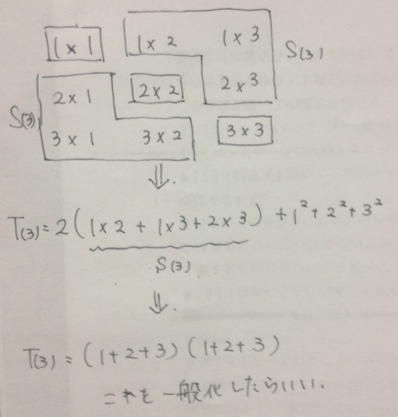 1×1 1×2 1×3 S(3)
2×1 2×2 2×3
S(3)
3×1 3×2 3×3
⇓.
T(3)=2(1×2+1×3+2×3)+1²+2²+3²
S(3)
⇓.
T(3)=(1+2+3)(1+2+3)
これを一般化したらいい.